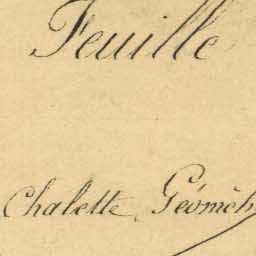 Feuille
Chalette, Géomèt